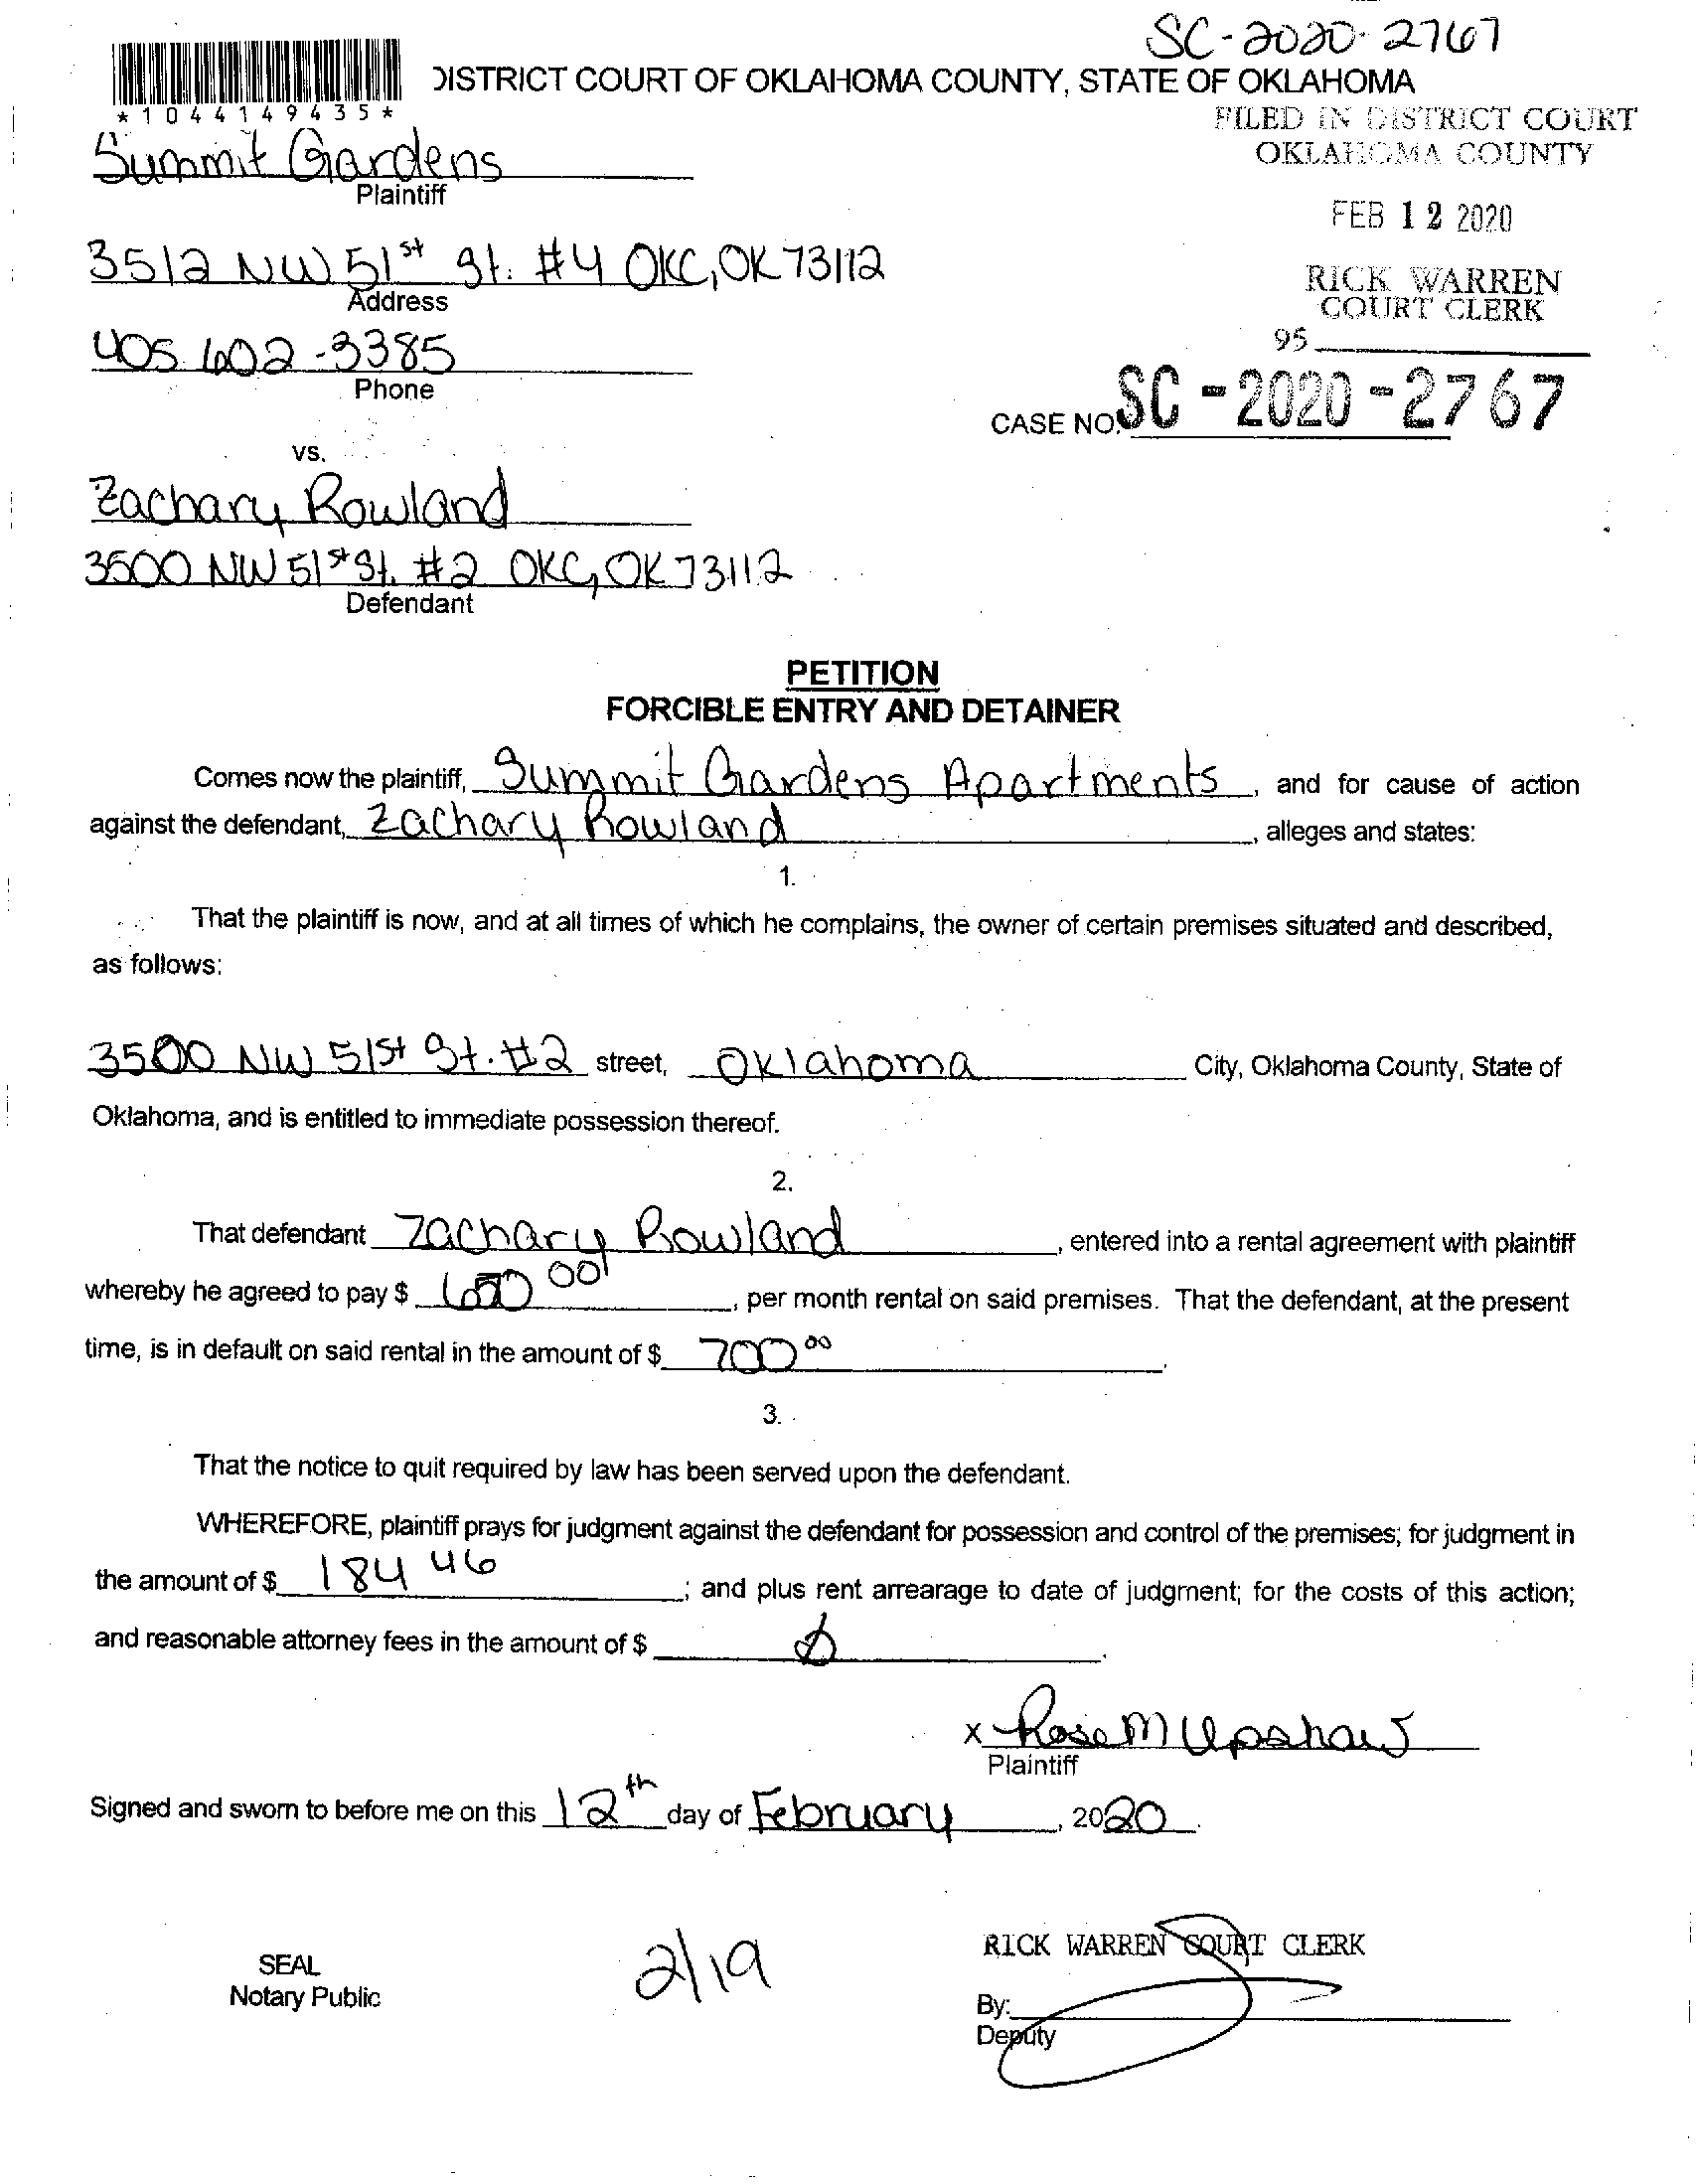 SC-2020-2767
DISTRICT COURT OF OKLAHOMA COUNTY, STATE OF OKLAHOMA
*1044149435*
FILED IN DISTRICT COURT
OKLAHOMA COUNTY
Summit Gardens
Plaintiff
FEB 12 2020
3512 NW 51st St. #4 OKC, OK 73112
Address
RICK WARREN
COURT CLERK
405 602-3385
Phone
95
CASE NO. SC-2020-2767
vs.
Zachary Rowland
3500 NW 51st St. #2 OKC, OK 73112
Defendant
PETITION
FORCIBLE ENTRY AND DETAINER
Comes now the plaintiff, Summit Gardens Apartments, and for cause of action
against the defendant, Zachary Rowland, alleges and states:
1.
That the plaintiff is now, and at all times of which he complains, the owner of certain premises situated and described,
as follows:
3500 NW 51st St. #2 street, Oklahoma City, Oklahoma County, State of
Oklahoma, and is entitled to immediate possession thereof.
2.
That defendant Zachary Rowland, entered into a rental agreement with plaintiff
whereby he agreed to pay $ 00, per month rental on said premises. That the defendant, at the present
time, is in default on said rental in the amount of $ 700 00.
3.
That the notice to quit required by law has been served upon the defendant.
WHEREFORE, plaintiff prays for judgment against the defendant for possession and control of the premises; for judgment in
the amount of $ 184 46; and plus rent arrearage to date of judgment; for the costs of this action;
and reasonable attorney fees in the amount of $
x Rose M Upshaw
Plaintiff
Signed and sworn to before me on this 12th day of February, 2020.
SEAL
Notary Public
2/19
RICK WARREN COURT CLERK
By:
Deputy